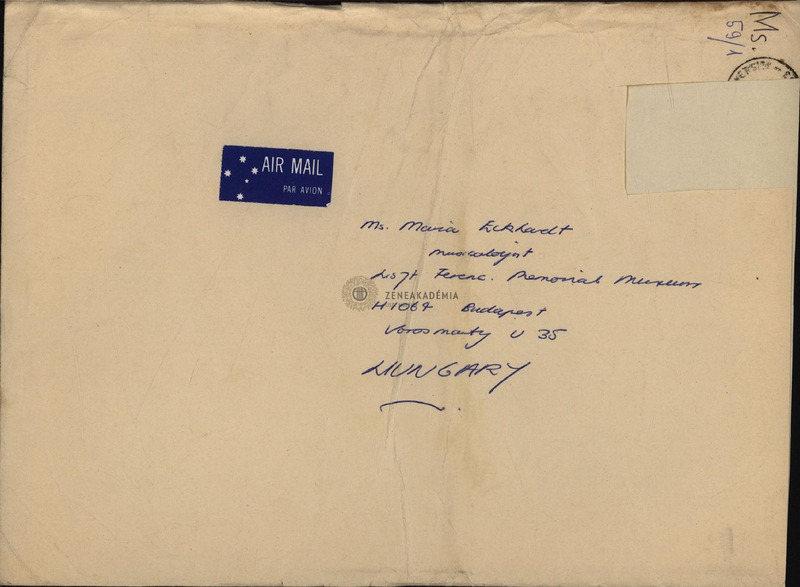 Ms.
59/1
AIR MAIL
PAR AVION
Ms. Maria Eckhardt
musicologist
Liszt Ferenc. Memorial Museum
ZENEAKADÉMIA
H1064 Budapest
Vorosmarty U 35
HUNGARY